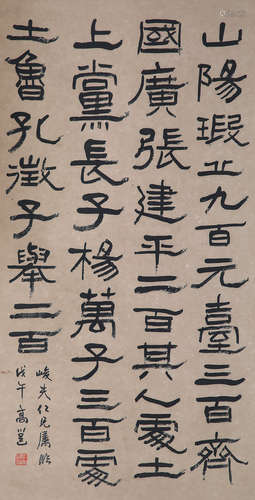 山陽瑕丘九百元臺三百齊
國廣張建平二百其人處士
上黨長子楊萬子三百處
士魯孔徵子舉二百
峻夫仁兄屬臨
戊午高邕